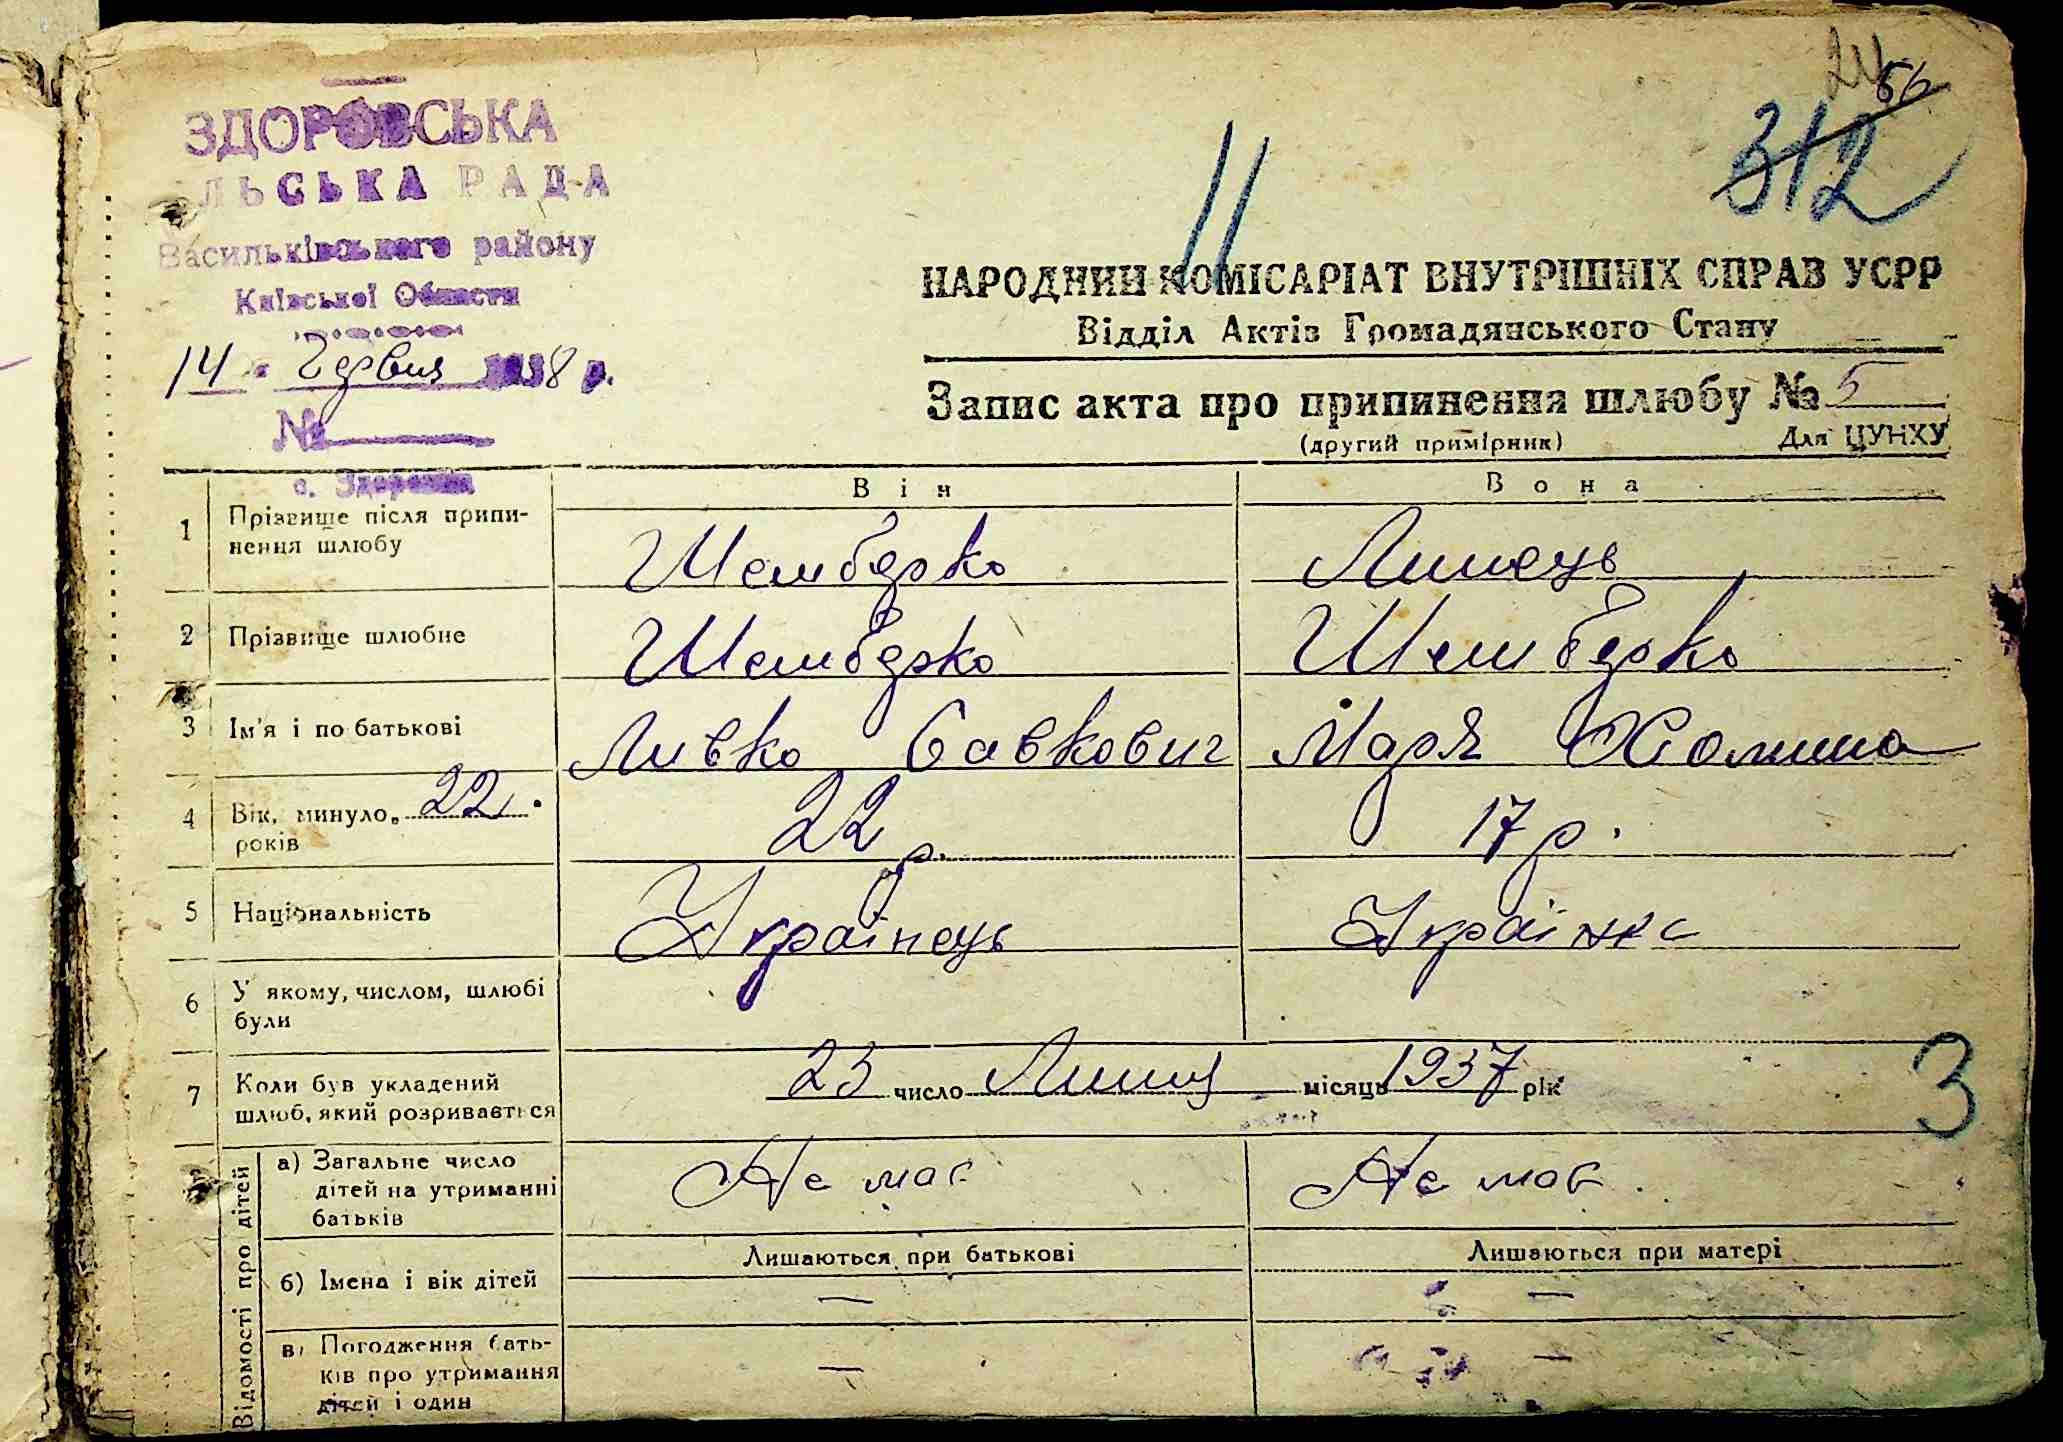 ЗДОРОВСЬКА
ЛЬСЬКА РАДА
Васильківського району
Київської Области
14 Червня 1938 р.
№
с. Здоровка
11
56
312
НАРОДНИЙ КОМІСАРІАТ ВНУТРІШНІХ СПРАВ УСРР
Відділ Актів Громадянського Стану
Запис акта про припинення шлюбу № 5
(другий примірник) Для ЦУНХУ
Він Вона
1 Прізвище після припи-
нення шлюбу Шемберко Линець
2 Прізвище шлюбне Шемберко Шемберко
3 Ім'я і по батькові Ливко Савкович Маря Хомина
4 Вік, минуло 22 22 р. 17 р.
років
5 Національність Українець Українка
6 У якому, числом, шлюбі
були
7 Коли був укладений 23 число Липця місяць 1937 рік
шлюб, який розривається
3
Відомості про дітей
а) Загальне число
дітей на утриманні Не має Не має
батьків
Лишаються при батькові Лишаються при матері
б) Імена і вік дітей — —
в) Погодження бать-
ків про утримання — —
дітей і один